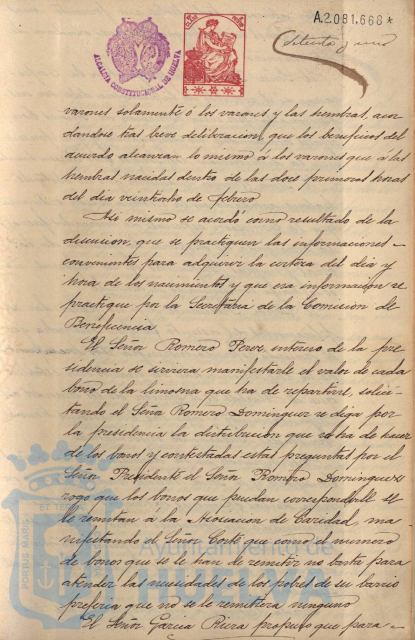 A.2.081.668*
Setenta y uno
ALCALDIA CONSTITUCIONAL DE HUELVA
varones solamente ó los varones y las hembras, acor
dandose tras breve deliberacion, que los beneficios del
acuerdo alcanzan lo mismo á los varones que á las
hembras nacidas dentro de las doce primeras horas
del dia veintiocho de febrero
Asi mismo se acordó como resultado de la
discusion, que se practiquen las informaciones
convenientes para adquirir la certeza del dia y
hora de los nacimientos y que esa informacion se
practique por la Secretaria de la Comision de
Beneficencia
El Señor Romero Perez intereso de la pre
sidencia se sirviera manifestarle el valor de cada
bono de la limosna que ha de repartirse, solici-
tando el Señor Romero Dominguez se diga por
la presidencia la distribucion que se ha de hacer
de los bonos y contestadas estas preguntas por el
Señor Presidente el Señor Romero Dominguez
rogo que los bonos que puedan corresponderle se
le remitan á la Asociacion de Caridad, ma
nifestando el Señor Corte que como el numero
de bonos que se le han de remitir no basta para
atender las necesidades de los pobres de su barrio
preferia que no se le remitiera ninguno
El Señor Garcia Riera propuso que para
PORTUS MARIS
Ayuntamiento de
HUELVA